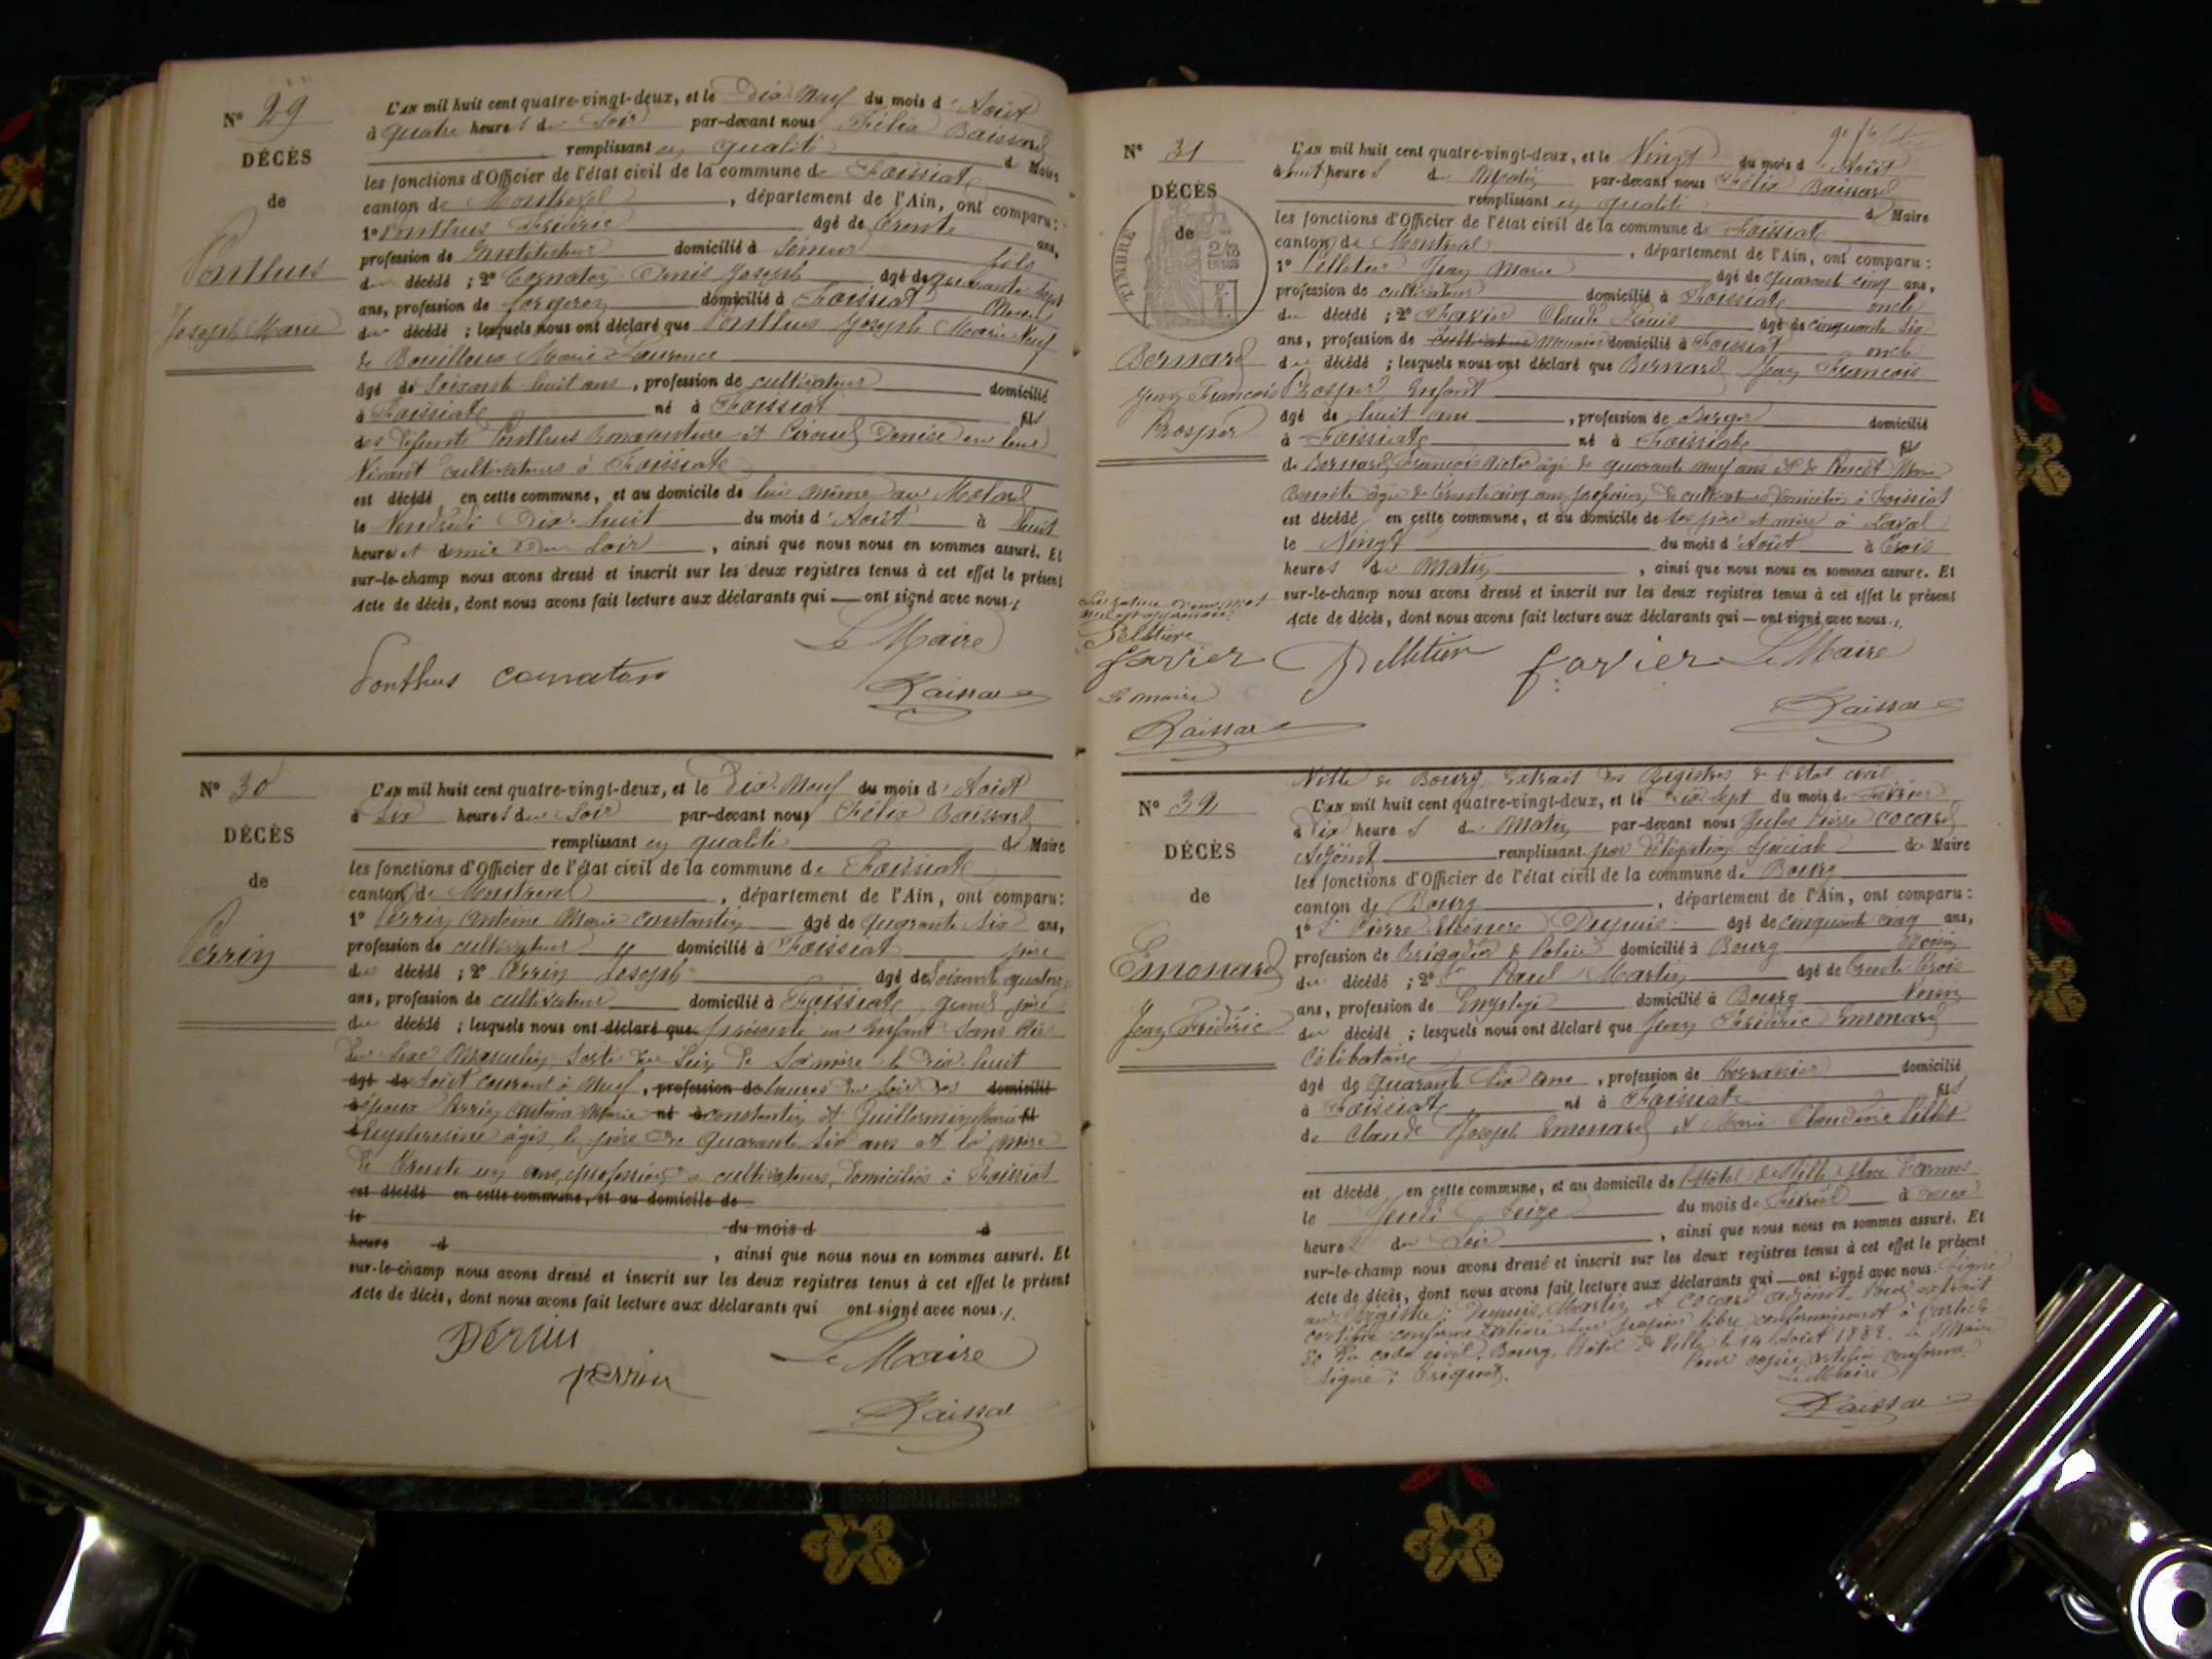 N° 29
DÉCÈS
de
Ponthus
Joseph Marie
L'an mil huit cent quatre-vingt-deux, et le Dix-Neuf du mois d'Août
à quatre heures du Soir par-devant nous Félix Baissard
remplissant en qualité de Maire
les fonctions d'Officier de l'état civil de la commune de Foissiat
canton de Montrevel, département de l'Ain, ont comparu :
1° Ponthus Frédéric âgé de trente ans,
profession de Instituteur domicilié à fils
du décédé ; 2° Cornaton Denis Joseph âgé de quarante sept
ans, profession de forgeron domicilié à Foissiat
du décédé ; lesquels nous ont déclaré que Ponthus Joseph Marie Veuf
de Bouilloux Marie Laurence
âgé de soixante huit ans, profession de cultivateur domicilié
à Foissiat né à Foissiat fils
des défunts Ponthus Bonaventure et Denise en leur
vivant cultivateurs à Foissiat
est décédé en cette commune, et au domicile de lui même au Molard
le Vendredi Dix-huit du mois d'Août à huit
heures et demie du Soir, ainsi que nous nous en sommes assuré. Et
sur-le-champ nous avons dressé et inscrit sur les deux registres tenus à cet effet le présent
Acte de décès, dont nous avons fait lecture aux déclarants qui — ont signé avec nous.
Le Maire
Ponthus Cornaton
N° 30
DÉCÈS
de
Perrin
L'an mil huit cent quatre-vingt-deux, et le Dix-Neuf du mois d'Août
à Six heures du Soir par-devant nous Félix Baissard
remplissant en qualité de Maire
les fonctions d'Officier de l'état civil de la commune de Foissiat
canton de Montrevel, département de l'Ain, ont comparu :
1° Perrin Antoine Marie Constantin âgé de quarante six ans,
profession de cultivateur domicilié à Foissiat père
du décédé ; 2° Perrin Joseph âgé de soixante quatorze
ans, profession de cultivateur domicilié à Foissiat grand père
du décédé ; lesquels nous ont déclaré que présenté un enfant sans vie
du sexe masculin, sorti du sein de sa mère le dix-huit
âgé de Août courant à neuf, profession de heures du soir des domicilié
à époux Perrin Antoine Marie né à Constantin et Guillermin Marie fil
âgés le père de quarante six ans et la mère
de trente un ans, profession de cultivateurs, domiciliés à Foissiat
est décédé en cette commune, et au domicile de
le du mois d à
heure d, ainsi que nous nous en sommes assuré. Et
sur-le-champ nous avons dressé et inscrit sur les deux registres tenus à cet effet le présent
Acte de décès, dont nous avons fait lecture aux déclarants qui ont signé avec nous.
Perrin
Le Maire
Perrin
N° 31
DÉCÈS
de
TIMBRE
Bernard
Jean François
Prosper
L'an mil huit cent quatre-vingt-deux, et le Vingt du mois d'Août
à huit heures du Matin par-devant nous Félix Baissard
remplissant en qualité de Maire
les fonctions d'Officier de l'état civil de la commune de Foissiat
canton de Montrevel, département de l'Ain, ont comparu :
1° Pelletier Jean Marie âgé de quarante cinq ans,
profession de cultivateur domicilié à Foissiat oncle
du décédé ; 2° Favier Claude Louis âgé de cinquante six
ans, profession de cultivateur Meunier domicilié à Foissiat oncle
du décédé ; lesquels nous ont déclaré que Bernard Jean François
Prosper Enfant
âgé de huit ans, profession de Berger domicilié
à Foissiat né à Foissiat fils
de Bernard François Victor âgé de quarante neuf ans et de Marie
Benoite âgée de trente cinq ans profession de cultivateurs domiciliés à Foissiat
est décédé en cette commune, et au domicile de ses père et mère à Laval
le Vingt du mois d'Août à trois
heures du Matin, ainsi que nous nous en sommes assuré. Et
sur-le-champ nous avons dressé et inscrit sur les deux registres tenus à cet effet le présent
Acte de décès, dont nous avons fait lecture aux déclarants qui — ont signé avec nous.
La rature d'un mot
nul est approuvée.
Pelletier
favier
Le maire
Pelletier favier Le Maire
N° 32
DÉCÈS
de
Emonard
Jean Frédéric
Ville de Bourg Extrait des Registres de l'Etat civil
L'an mil huit cent quatre-vingt-deux, et le dix-sept du mois de Février
à Dix heures du Matin par-devant nous Jules Pierre Cocard
Adjoint remplissant par délégation spéciale du Maire
les fonctions d'Officier de l'état civil de la commune de Bourg
canton de Bourg, département de l'Ain, ont comparu :
1° Pierre Dupuis âgé de cinquante cinq ans,
profession de Brigadier de Police domicilié à Bourg voisin
du décédé ; 2° Paul Martin âgé de trente trois
ans, profession de Employé domicilié à Bourg Voisin
du décédé ; lesquels nous ont déclaré que Jean Frédéric Emonard
Célibataire
âgé de quarante six ans, profession de domicilié
à Foissiat né à Foissiat fils
de Claude Joseph Emonard et Marie Claudine
est décédé en cette commune, et au domicile de l'Hôtel de Ville place d'armes
le Jeudi Seize du mois de Février à deux
heures du Soir, ainsi que nous nous en sommes assuré. Et
sur-le-champ nous avons dressé et inscrit sur les deux registres tenus à cet effet le présent
Acte de décès, dont nous avons fait lecture aux déclarants qui — ont signé avec nous. Signé
au Registre : Dupuis, Martin et Cocard adjoint. Pour extrait
certifié conforme délivré sur papier libre conformément à l'article
80 du code civil. Bourg, Hôtel de Ville le 14 Août 1882. Le Maire
Signé : Pour copie certifiée conforme
Le Maire